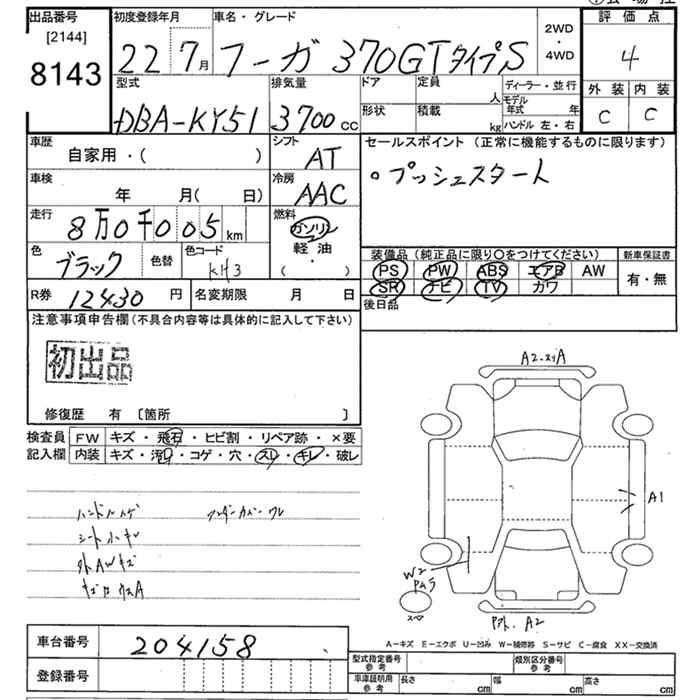 出品番号 [2144] 8143
初度登録年月 22 7月
車名・グレード フーガ 370GTタイプS
2WD・4WD
評価点 4
外装 C 内装 C
型式 DBA-KY51
排気量 3700cc
ドア 形状
定員 人 積載 kg
ディーラー・並行
モデル年式 年
ハンドル 左・右
車歴 自家用・( )
シフト AT
車検 年 月( 日)
冷房 AAC
走行 8万0千005km
燃料 ガソリン 軽油・( )
色 ブラック 色替
色コード KH3
R券 12430円
名変期限 月 日
セールスポイント (正常に機能するものに限ります)
。プッシュスタート
装備品 (純正品に限り○をつけてください)
新車保証書 有・無
PS PW ABS エアB AW
SR ナビ TV カワ
後日品
注意事項申告欄(不具合内容等は具体的に記入して下さい)
初出品
修復歴 有 〔箇所 〕
検査員記入欄
FW キズ・飛石・ヒビ割・リペア跡・×要
内装 キズ・汚れ・コゲ・穴・スレ・キレ・破レ
ハンドルハゲ アンダーカバーワレ
シート小キレ
外AWキズ
A1
W2
A2
A-キズ E-エクボ U-凹み W-補修跡 S-サビ C-腐食 XX-交換済
スペア
車台番号 204158
登録番号
型式指定番号 参考
類別区分番号 参考
車庫証明用 参考
長さ cm 幅 cm 高さ cm